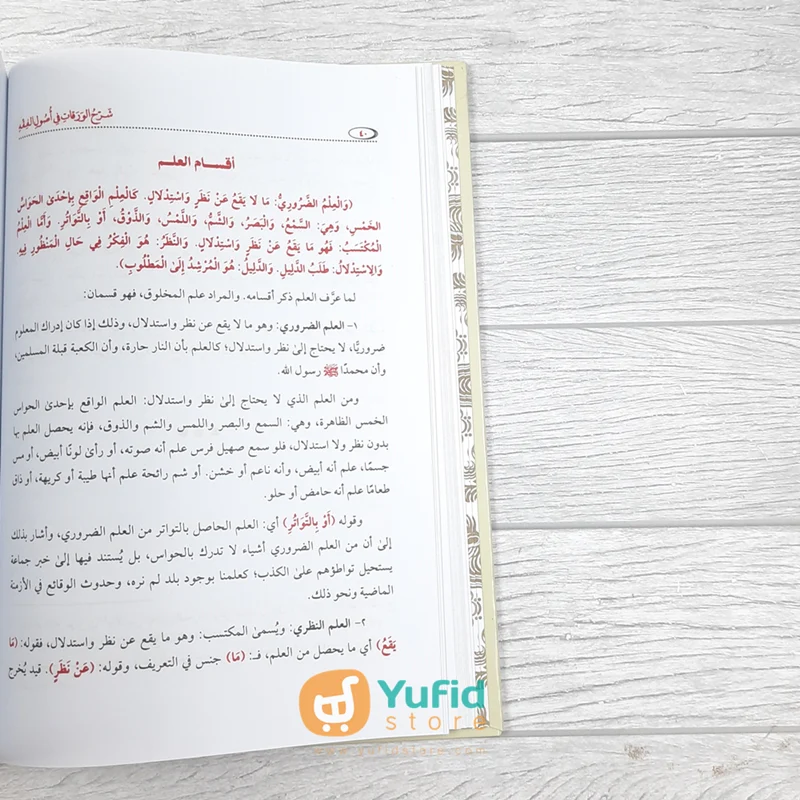 شَرْحُ الوَرَقَاتِ فِي أُصُولِ الفِقْهِ
٤٠
أقسـام العلـم
(وَالْعِلْمُ الضَّرُورِيُّ: مَا لَا يَقَعُ عَنْ نَظَرٍ وَاسْتِدْلَالٍ. كَالْعِلْمِ الْوَاقِعِ بِإِحْدَىٰ الْحَوَاسِّ
الْخَمْسِ، وَهِيَ: السَّمْعُ، وَالْبَصَرُ، وَالشَّمُّ، وَاللَّمْسُ، وَالذَّوْقُ، أَوْ بِالتَّوَاتُرِ. وَأَمَّا الْعِلْمُ
الْمُكْتَسَبُ: فَهُوَ مَا يَقَعُ عَنْ نَظَرٍ وَاسْتِدْلَالٍ. وَالنَّظَرُ: هُوَ الْفِكْرُ فِي حَالِ الْمَنْظُورِ فِيهِ.
وَالِاسْتِدْلَالُ: طَلَبُ الدَّلِيلِ. وَالدَّلِيلُ: هُوَ الْمُرْشِدُ إِلَىٰ الْمَطْلُوبِ).
لما عرَّف العلم ذكر أقسامه. والمراد علم المخلوق، فهو قسمان:
١- العلم الضروري: وهو ما لا يقع عن نظر واستدلال، وذلك إذا كان إدراك المعلوم
ضروريًّا، لا يحتاج إلىٰ نظر واستدلال؛ كالعلم بأن النار حارة، وأن الكعبة قبلة المسلمين،
وأن محمدًا ﷺ رسول الله.
ومن العلم الذي لا يحتاج إلىٰ نظر واستدلال: العلم الواقع بإحدىٰ الحواس
الخمس الظاهرة، وهي: السمع والبصر واللمس والشم والذوق، فإنه يحصل العلم بها
بدون نظر ولا استدلال، فلو سمع صهيل فرس علم أنه صوته، أو رأىٰ لونًا أبيض، أو مس
جسمًا، علم أنه أبيض، وأنه ناعم أو خشن. أو شم رائحة علم أنها طيبة أو كريهة، أو ذاق
طعامًا علم أنه حامض أو حلو.
وقوله (أَوْ بِالتَّوَاتُرِ) أي: العلم الحاصل بالتواتر من العلم الضروري، وأشار بذلك
إلىٰ أن من العلم الضروري أشياء لا تدرك بالحواس، بل يُستند فيها إلىٰ خبر جماعة
يستحيل تواطؤهم علىٰ الكذب؛ كعلمنا بوجود بلد لم نره، وحدوث الوقائع في الأزمنة
الماضية ونحو ذلك.
٢- العلم النظري: ويُسمىٰ المكتسب: وهو ما يقع عن نظر واستدلال، فقوله: (مَا
يَقَعُ) أي ما يحصل من العلم، فـ: (مَا) جنس في التعريف، وقوله: (عَنْ نَظَرٍ). قيد يُخرج
Yufid
store
www.yufidstore.com